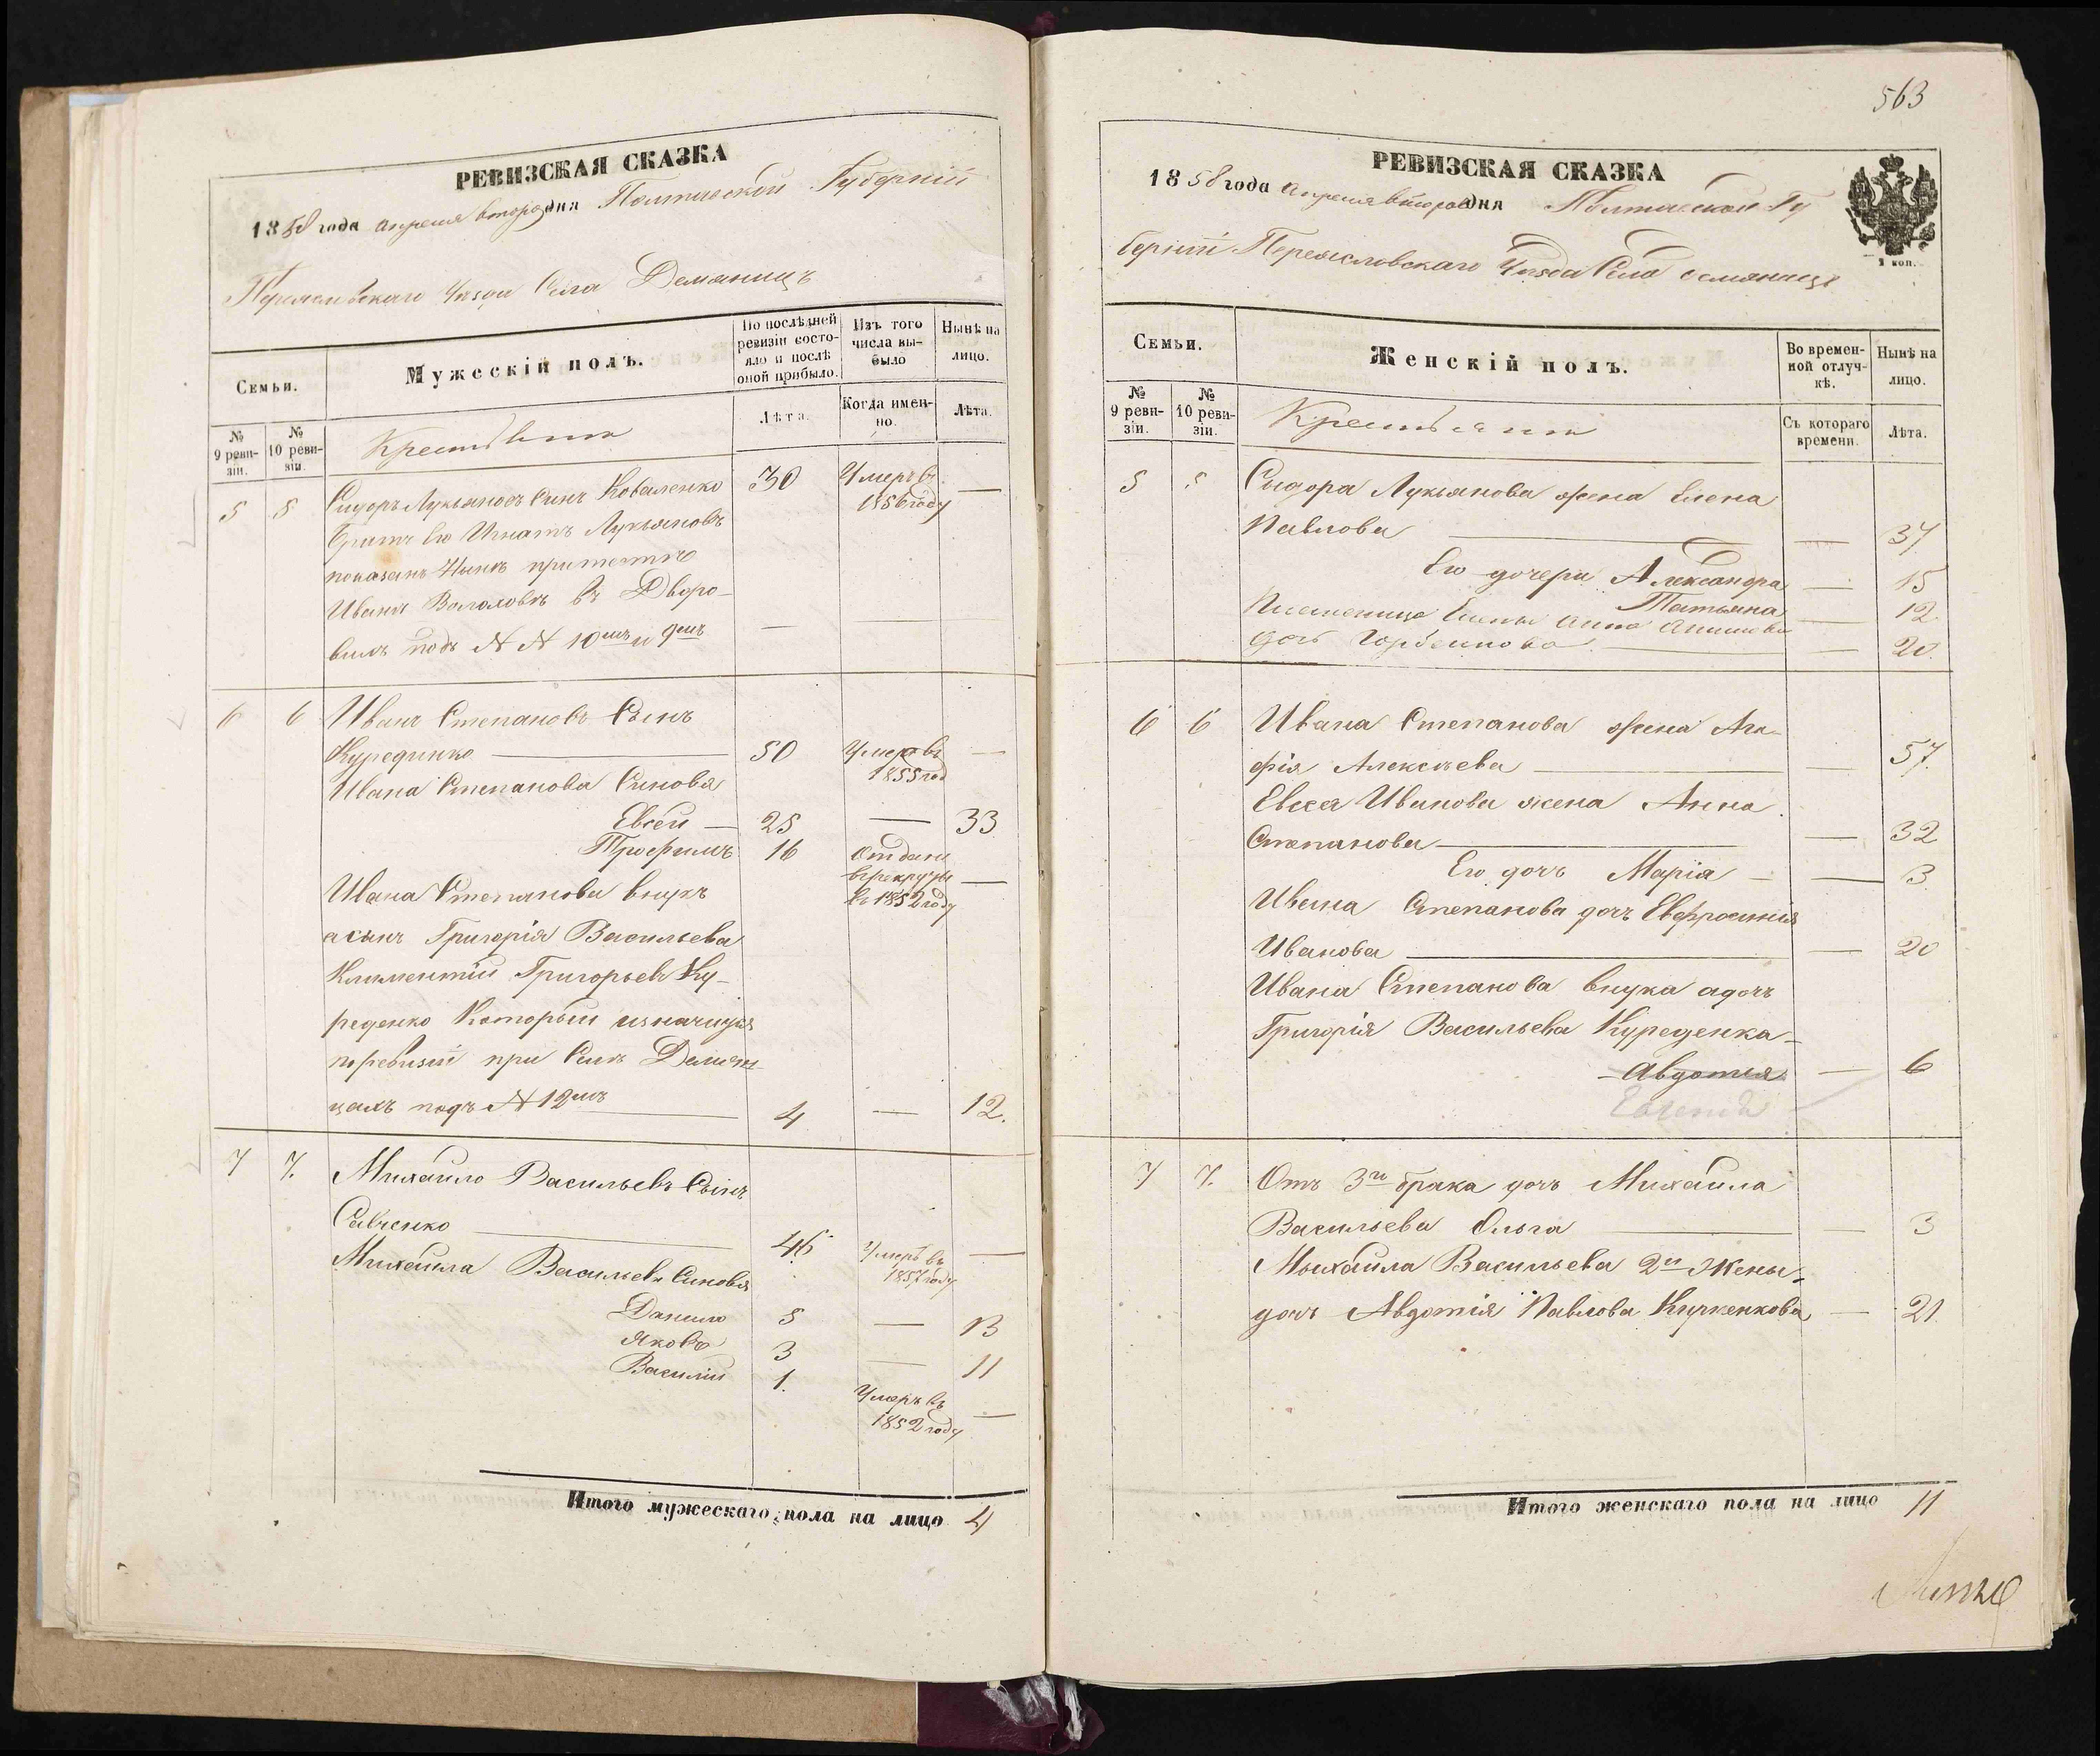 РЕВИЗСКАЯ СКАЗКА
1858 года апреля второго дня Полтавской Губерніи
Переяславскаго Уѣзда Села Демяницъ
Семьи.
Мужескій полъ.
По послѣдней ревизіи состояло и послѣ оной прибыло.
Изъ того числа выбыло
Нынѣ на лицо.
№ 9 ревизіи.
№ 10 ревизіи.
Лѣта.
Когда именно.
Лѣта.
Крестьяне
5 5 Сидоръ Лукьяновъ Синъ Коваленко 30 Умеръ въ 1856 году —
Братъ Его Игнатъ Лукьяновъ
показанъ Нынѣ при
Ивана в Дворо-
подъ N N 10мъ и 9мъ — —
6 6 Иванъ Степановъ Сынъ
Курединко — 50 Умеръ въ 1855 год —
Ивана Степанова Синовя
Евсей — 25 — 33
Трофимъ 16 Отданъ в рекруты въ 1852 году —
Ивана Степанова внукъ
а сынъ Григорія Васильева
Климентій Григорьевъ Ку-
реденко Который значился
по ревизіи при Селѣ Демян-
цахъ подъ N 12мъ — 4 — 12.
7 7. Михайло Васильевъ Сынъ
Савченко — 46 Умеръ въ 1857 году —
Михайла Васильева Синовя
Данило 5 — 13
Яковъ 3 — 11
Василій 1. Умеръ въ 1852 году —
Итого мужескаго пола на лицо 4
563
РЕВИЗСКАЯ СКАЗКА
1858 года апреля второго дня Полтавской Гу
берніи Переяславскаго Уѣзда Села Демяницъ
1 коп.
Семьи.
Женскій полъ.
Во временной отлучкѣ.
Нынѣ на лицо.
№ 9 ревизіи.
№ 10 ревизіи.
Съ котораго времени.
Лѣта.
Крестьяне
5 5 Сидора Лукьянова жена Елена
Павлова — — 37
Его дочери Александра — 15
Татьяна — 12
Елены Анна
дочь Горбенкова — — 20.
6 6 Ивана Степанова жена Ага-
фія Алексѣева — — 57.
Евсея Иванова жена Анна
Степанова — — 32
Его дочь Марія — — 3
Ивана Степанова дочь Евфросинія
Иванова — — 20
Ивана Степанова внука а дочь
Григорія Васильева Куреденка-
Авдотия — 6
7 7. Отъ 3го брака дочь Михайла
Васильева Ольга — — 3
Михайла Васильева 2й Жены-
дочь Авдотія Павлова — 21.
Итого женскаго пола на лицо 11